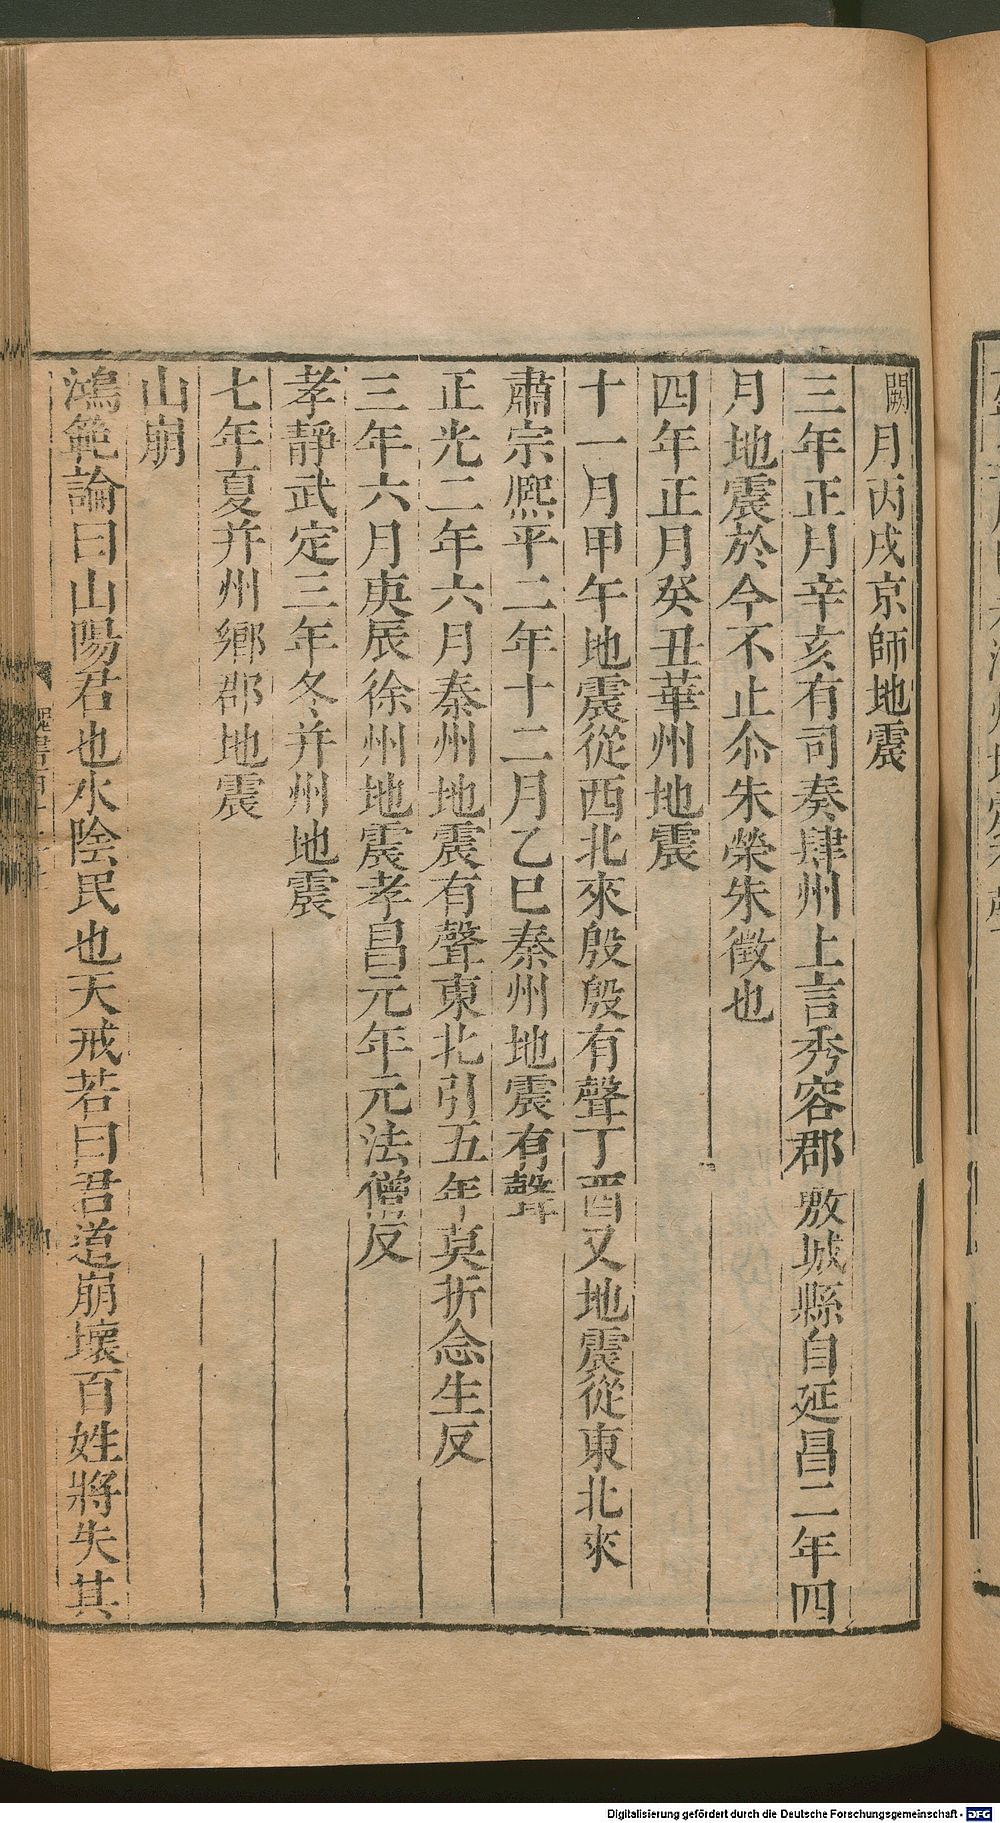 闕月丙戌京師地震
三年正月辛亥有司奏肆州上言秀容郡敷城縣自延昌二年四
月地震於今不止尒朱榮朱徵也
四年正月癸丑華州地震
十一月甲午地震從西北來殷殷有聲丁酉又地震從東北來
肅宗熈平二年十二月乙巳秦州地震有聲
正光二年六月秦州地震有聲東北引五年莫折念生反
三年六月庚辰徐州地震孝昌元年元法僧反
孝靜武定三年冬并州地震
七年夏并州鄉郡地震
山崩
鴻範論曰山陽君也水陰民也天戒若曰君道崩壞百姓將失其
Digitalisierung gefördert durch die Deutsche Forschungsgemeinschaft - DFG